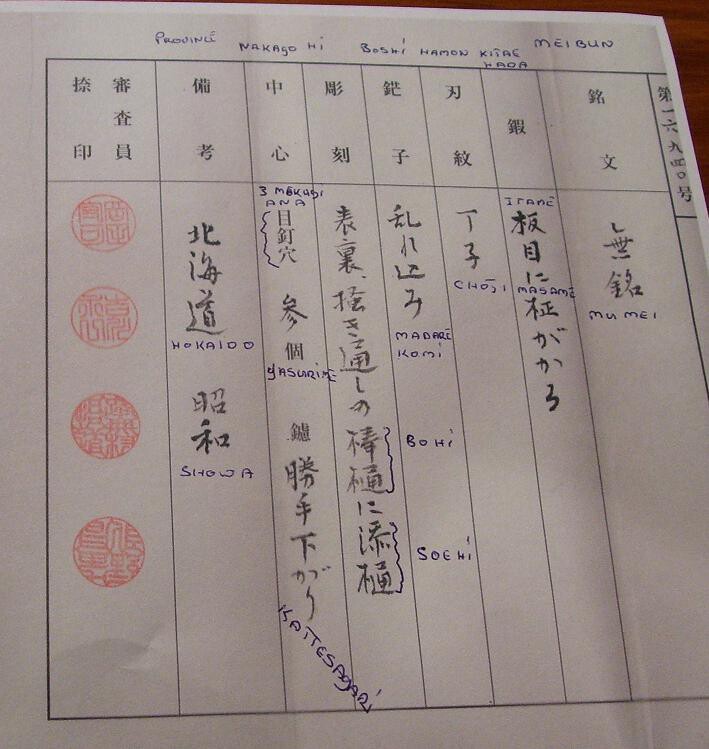 PROVINCÉ NAKAGO HI BOSHI HAMON KITAE MEIBUN
HADA
第一六九四〇号
銘文
無銘
MUMEI
鍜
ITAMÉ
板目に柾がかる
MASAMÉ
刃紋
丁子
CHOJI
鋩子
乱れ込み
MADARÉ
KOMI
彫刻
表裏、掻き通しの棒樋に添樋
BOHI
SOEHI
中心
3 MEKUGI
ANA
目釘穴 参個
YASURIMÉ
鑢 勝手下がり
KATTESAGARI
備考
北海道
HOKAIDO
昭和
SHOWA
審査員
捺印